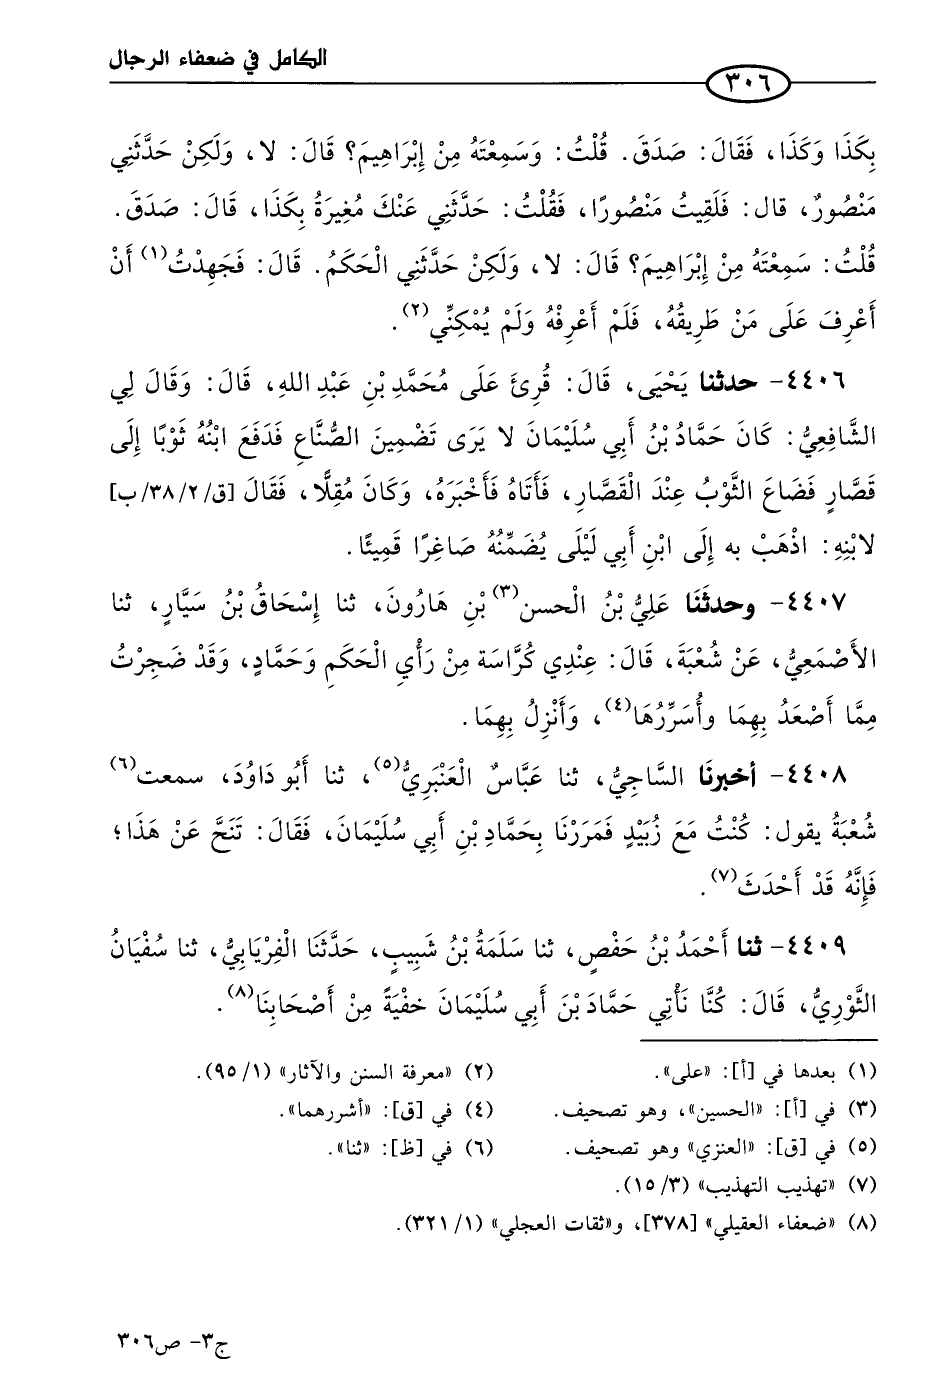 الكامل في ضعفاء الرجال
٣٠٦
بِكَذَا وَكَذَا، فَقَالَ: صَدَقَ. قُلْتُ: وَسَمِعْتَهُ مِنْ إِبْرَاهِيمَ؟ قَالَ: لا، وَلَكِنْ حَدَّثَنِي
مَنْصُورٌ، قال: فَلَقِيتُ مَنْصُورًا، فَقُلْتُ: حَدَّثَنِي عَنْكَ مُغِيرَةُ بِكَذَا، قَالَ: صَدَقَ.
قُلْتُ: سَمِعْتَهُ مِنْ إِبْرَاهِيمَ؟ قَالَ: لا، وَلَكِنْ حَدَّثَنِي الْحَكَمُ. قَالَ: فَجَهِدْتُ(١) أَنْ
أَعْرِفَ عَلَى مَنْ طَرِيقُهُ، فَلَمْ أَعْرِفْهُ وَلَمْ يُمْكِنِّي(٢).
٤٤٠٦- حدثنا يَحْيَى، قَالَ: قُرِئَ عَلَى مُحَمَّدِ بْنِ عَبْدِ اللهِ، قَالَ: وَقَالَ لِي
الشَّافِعِيُّ: كَانَ حَمَّادُ بْنُ أَبِي سُلَيْمَانَ لا يَرَى تَضْمِينَ الصُّنَّاعِ فَدَفَعَ ابْنُهُ ثَوْبًا إِلَى
قَصَّارٍ فَضَاعَ الثَّوْبُ عِنْدَ الْقَصَّارِ، فَأَتَاهُ فَأَخْبَرَهُ، وَكَانَ مُقِلًّا، فَقَالَ [ق/٢/٣٨/ب]
لابْنِهِ: اذْهَبْ به إِلَى ابْنِ أَبِي لَيْلَى يُضَمِّنْهُ صَاغِرًا قَمِيئًا.
٤٤٠٧- وحدثَنَا عَلِيُّ بْنُ الْحسن(٣) بْنِ هَارُونَ، ثنا إِسْحَاقُ بْنُ سَيَّارٍ، ثنا
الأَصْمَعِيُّ، عَنْ شُعْبَةَ، قَالَ: عِنْدِي كُرَّاسَة مِنْ رَأْيِ الْحَكَمِ وَحَمَّادٍ، وَقَدْ ضَجِرْتُ
مِمَّا أَصْعَدُ بِهِمَا وأُسَرِّرُهَا(٤)، وَأَنْزِلُ بِهِمَا.
٤٤٠٨- أخبرنَا السَّاجِيُّ، ثنا عَبَّاسٌ الْعَنْبَرِيُّ(٥)، ثنا أَبُو دَاوُدَ، سمعت(٦)
شُعْبَةُ يقول: كُنْتُ مَعَ زُبَيْدٍ فَمَرَرْنَا بِحَمَّادِ بْنِ أَبِي سُلَيْمَانَ، فَقَالَ: تَنَحَّ عَنْ هَذَا؛
فَإِنَّهُ قَدْ أَحْدَثَ(٧).
٤٤٠٩- ثنا أَحْمَدُ بْنُ حَفْصٍ، ثنا سَلَمَةُ بْنُ شَبِيبٍ، حَدَّثَنَا الْفِرْيَابِيُّ، ثنا سُفْيَانُ
الثَّوْرِيُّ، قَالَ: كُنَّا نَأْتِي حَمَّادَ بْنَ أَبِي سُلَيْمَانَ خفْيَةً مِنْ أَصْحَابِنَا(٨).
(١) بعدها في [أ]: «على». (٢) «معرفة السنن والآثار» (١/ ٩٥).
(٣) في [أ]: «الحسين»، وهو تصحيف. (٤) في [ق]: «أشررهما».
(٥) في [ق]: «العنزي» وهو تصحيف. (٦) في [ظ]: «ثنا».
(٧) «تهذيب التهذيب» (٣/ ١٥).
(٨) «ضعفاء العقيلي» [٣٧٨]، و«ثقات العجلي» (١/ ٣٢١).
ج٣- ص٣٠٦